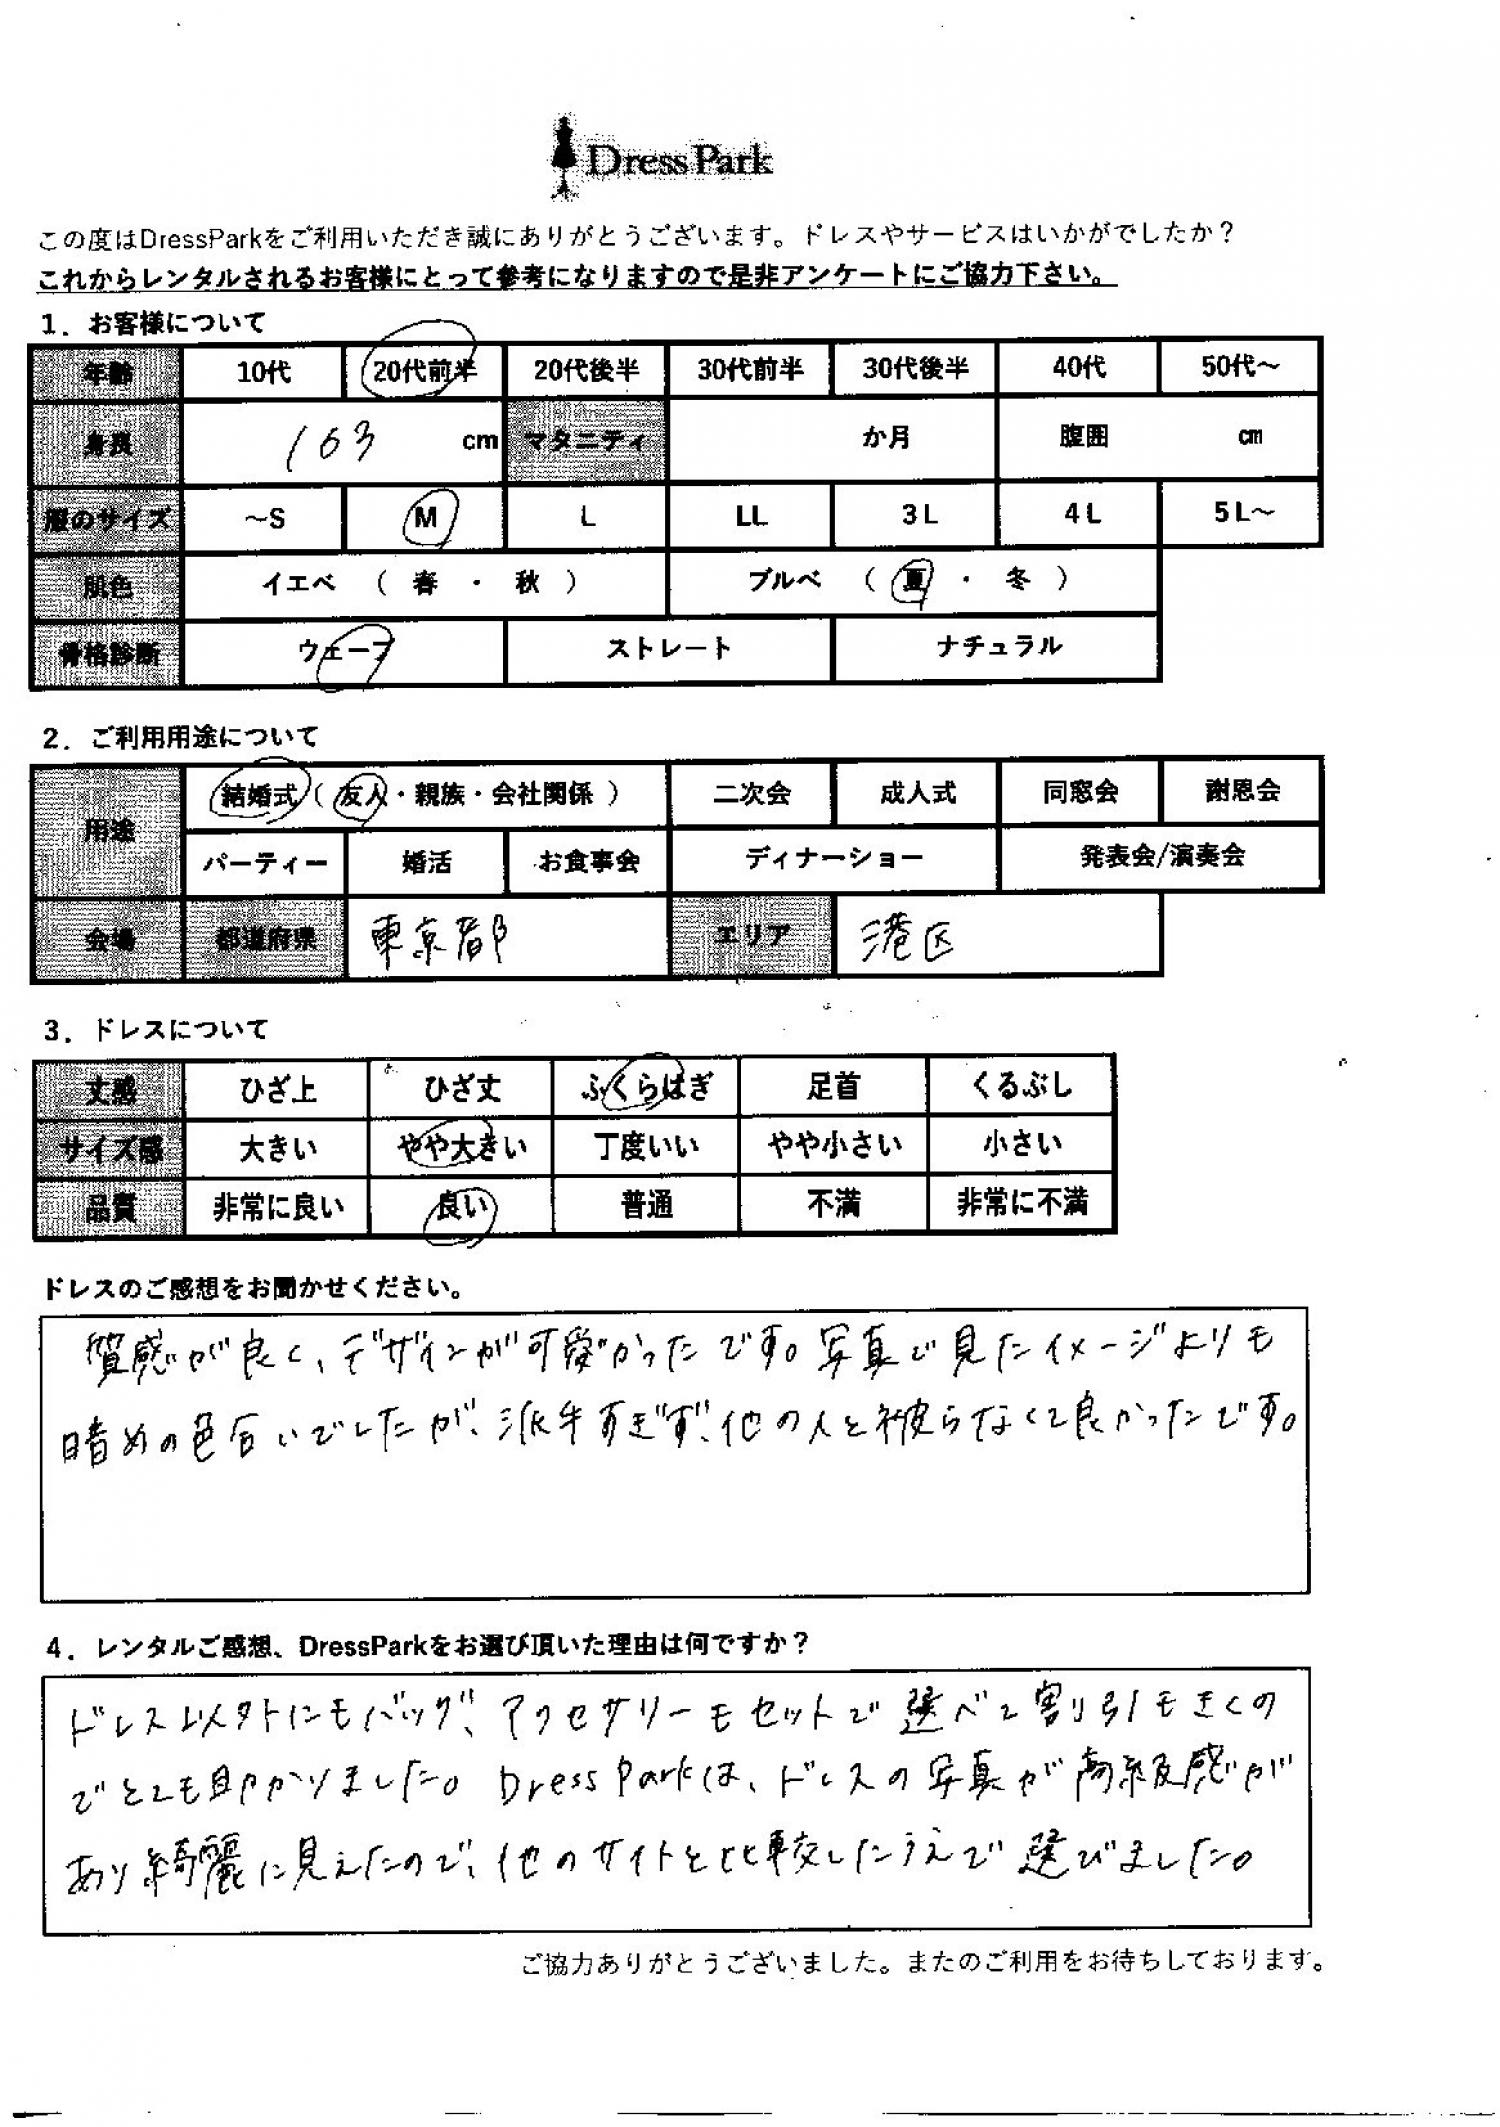 Dress Park
この度はDressParkをご利用いただき誠にありがとうございます。ドレスやサービスはいかがでしたか？
これからレンタルされるお客様にとって参考になりますので是非アンケートにご協力下さい。
1．お客様について
年齢 10代 20代前半 20代後半 30代前半 30代後半 40代 50代～
身長 163 cm マタニティ か月 腹囲 cm
服のサイズ ～S M L LL 3L 4L 5L～
肌色 イエベ （ 春 ・ 秋 ） ブルベ （ 夏 ・ 冬 ）
骨格診断 ウェーブ ストレート ナチュラル
2．ご利用用途について
用途 結婚式（ 友人・親族・会社関係 ） 二次会 成人式 同窓会 謝恩会
パーティー 婚活 お食事会 ディナーショー 発表会/演奏会
会場 都道府県 東京都 エリア 港区
3．ドレスについて
丈感 ひざ上 ひざ丈 ふくらはぎ 足首 くるぶし
サイズ感 大きい やや大きい 丁度いい やや小さい 小さい
品質 非常に良い 良い 普通 不満 非常に不満
ドレスのご感想をお聞かせください。
質感が良く、デザインが可愛かったです。写真で見たイメージよりも
暗めの色合いでしたが、派手すぎず、他の人と被らなくて良かったです。
4．レンタルご感想、DressParkをお選び頂いた理由は何ですか？
ドレス以外にもバッグ、アクセサリーもセットで選べて割り引もきくの
でとても助かりました。Dress Parkは、ドレスの写真が高級感が
あり綺麗に見えたので、他のサイトと比較したうえで選びました。
ご協力ありがとうございました。またのご利用をお待ちしております。